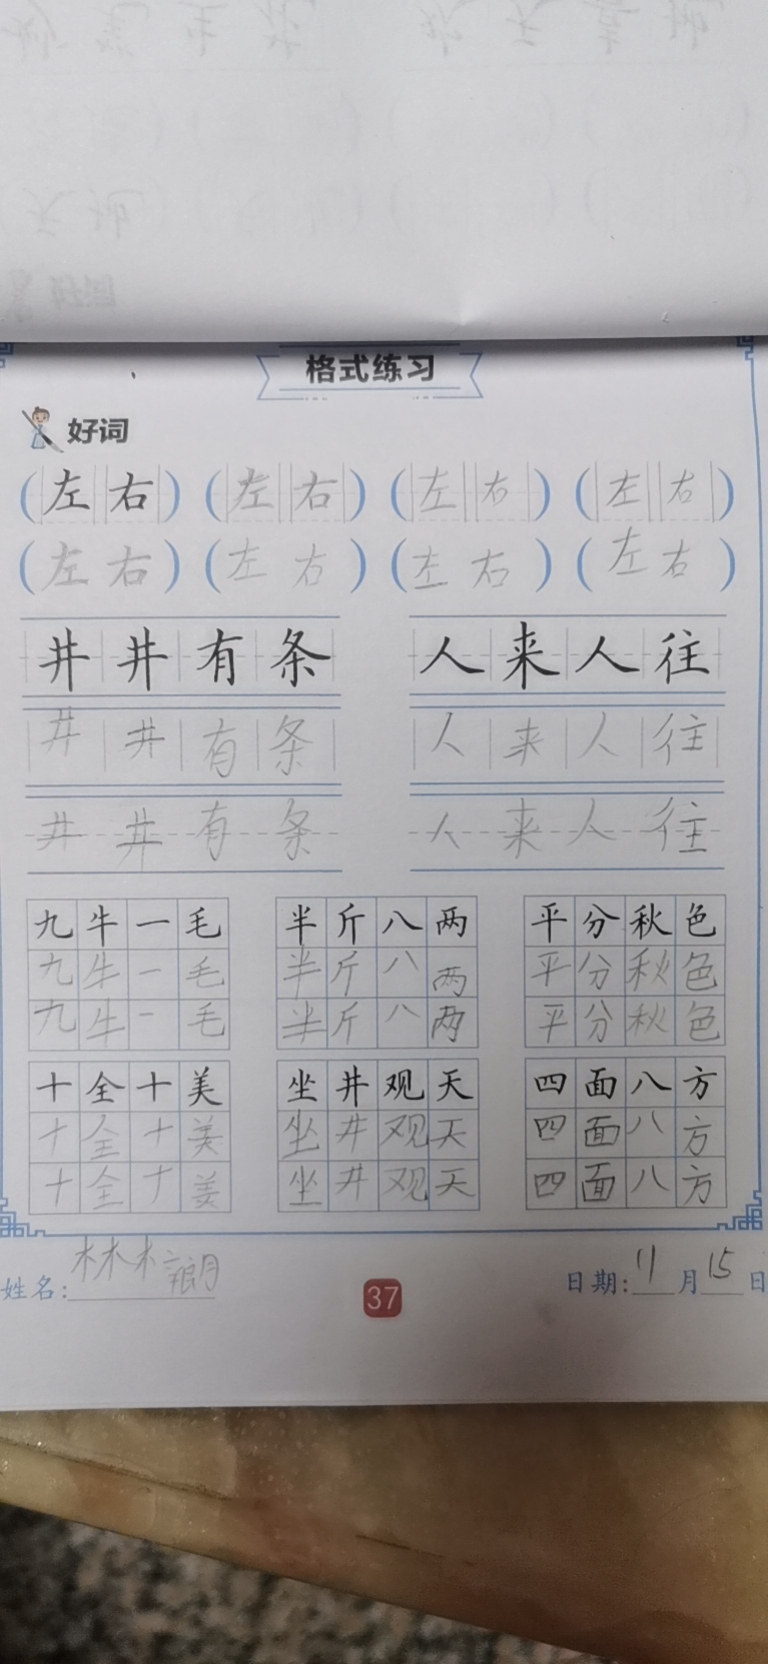 格式练习
好词
(左右) (左右) (左右) (左右)
(左右) (左右) (左右) (左右)
井井有条 人来人往
井井有条 人来人往
井井有条 人来人往
九牛一毛 半斤八两 平分秋色
九牛一毛 半斤八两 平分秋色
九牛一毛 半斤八两 平分秋色
十全十美 坐井观天 四面八方
十全十美 坐井观天 四面八方
十全十美 坐井观天 四面八方
姓名: 37 日期:11月15日